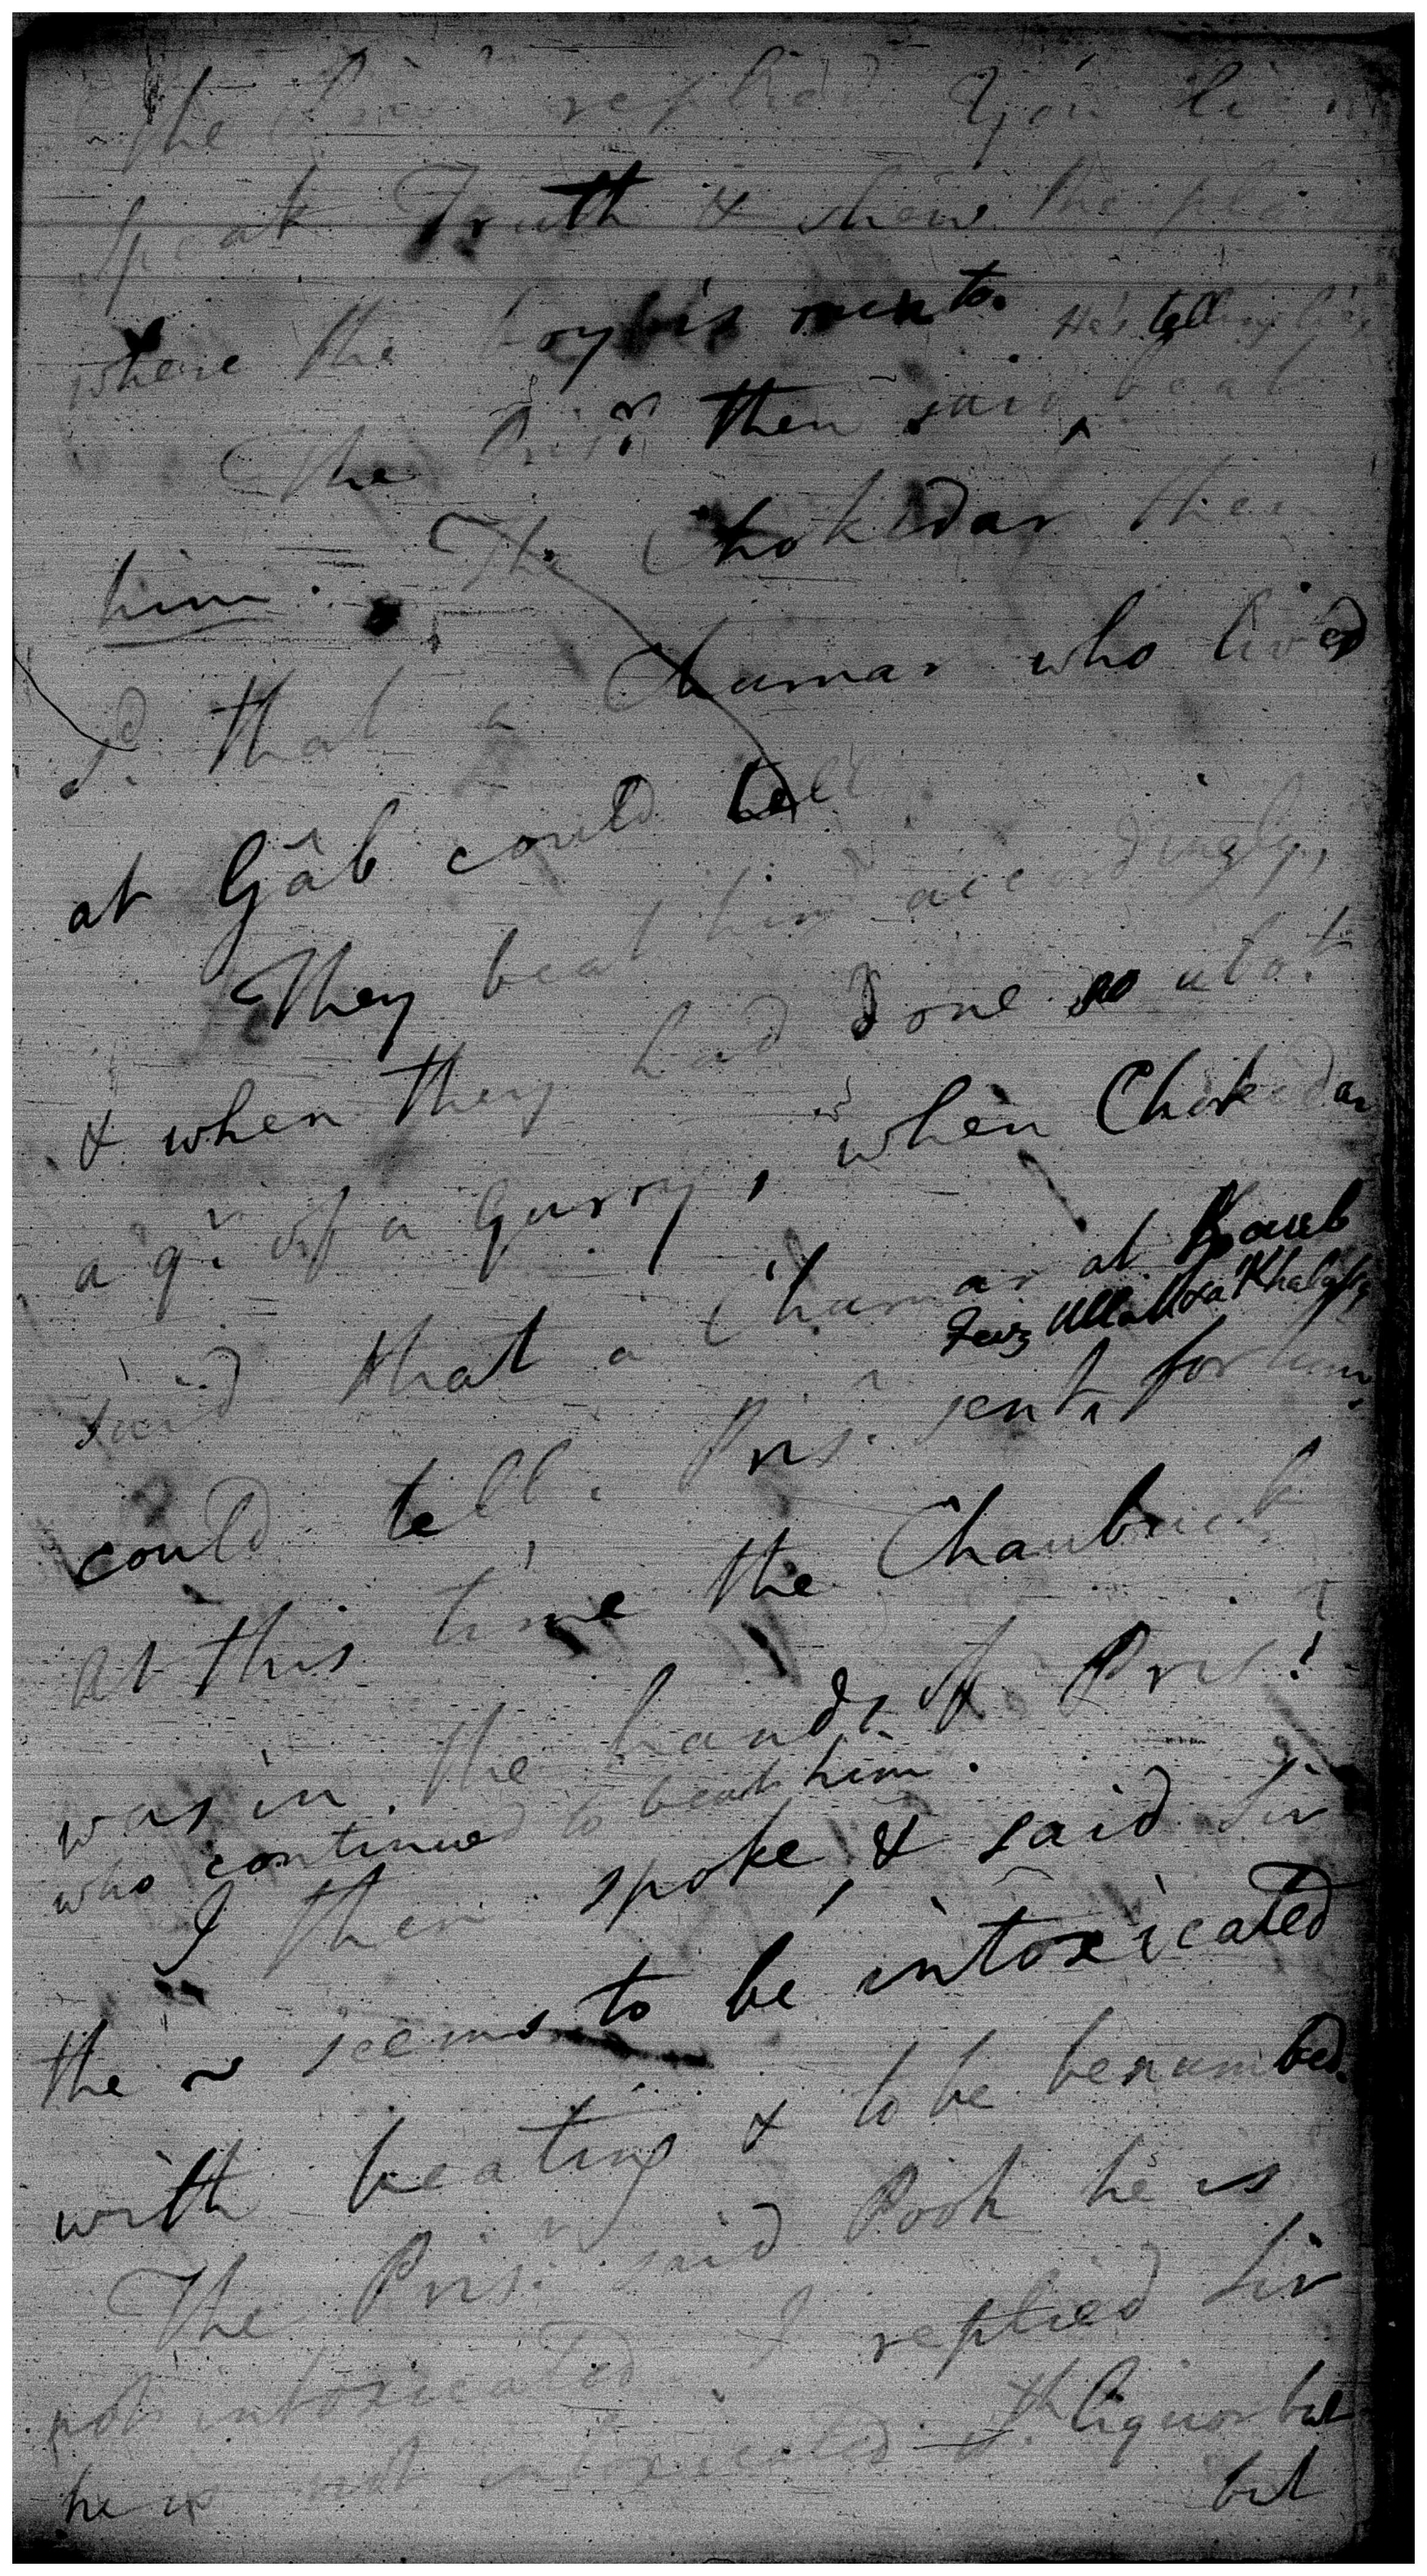 The replied You lie
speak Truth & shew the place
where the boy is sent to.
He's telling lies
The Pris.r then said ^ beat
him. The Chokedar then
s.d that a Chumar who lived
at Gâb could tell
They beat him accordingly,
& when they had done so abo.t
a q.r of a Gurry, when Chokedar
said that a Chumar at
Faiz Ulla Khalassy
could tell. Pris.r sent ^ for him
at this time the Chaubuck
was in the hands of Pris.r
who continued to beat him.
I then spoke, & said Sir
the ~ seems to be intoxicated
with beating & to be benumbed.
The Pris.r said Pooh he is
not intoxicated I replied Sir
he is not intoxicated w.th liquor but
but